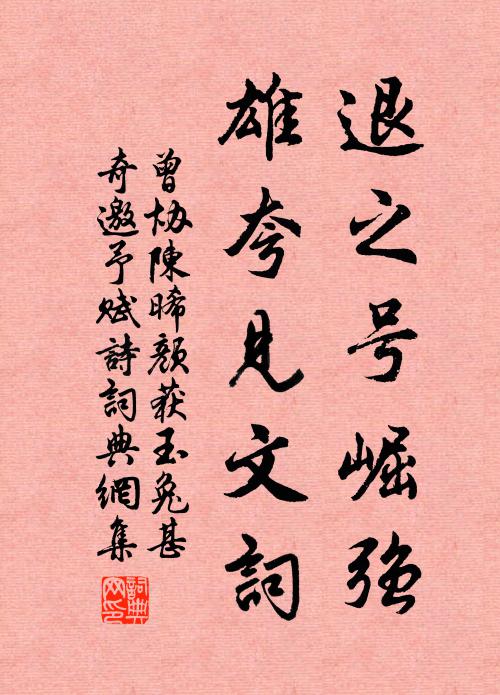 退之号崛强
雄夸見文詞
曾协陳晞顔获玉兔甚
奇邀予赋詩詞典網集
詞典网印